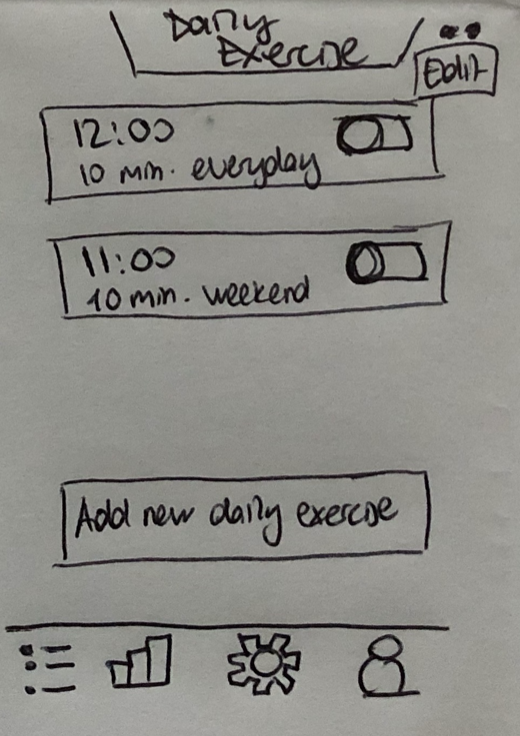 Daily
Exercise
Edit
12:00
10 min. everyday
11:00
10 min. weekend
Add new daily exercise